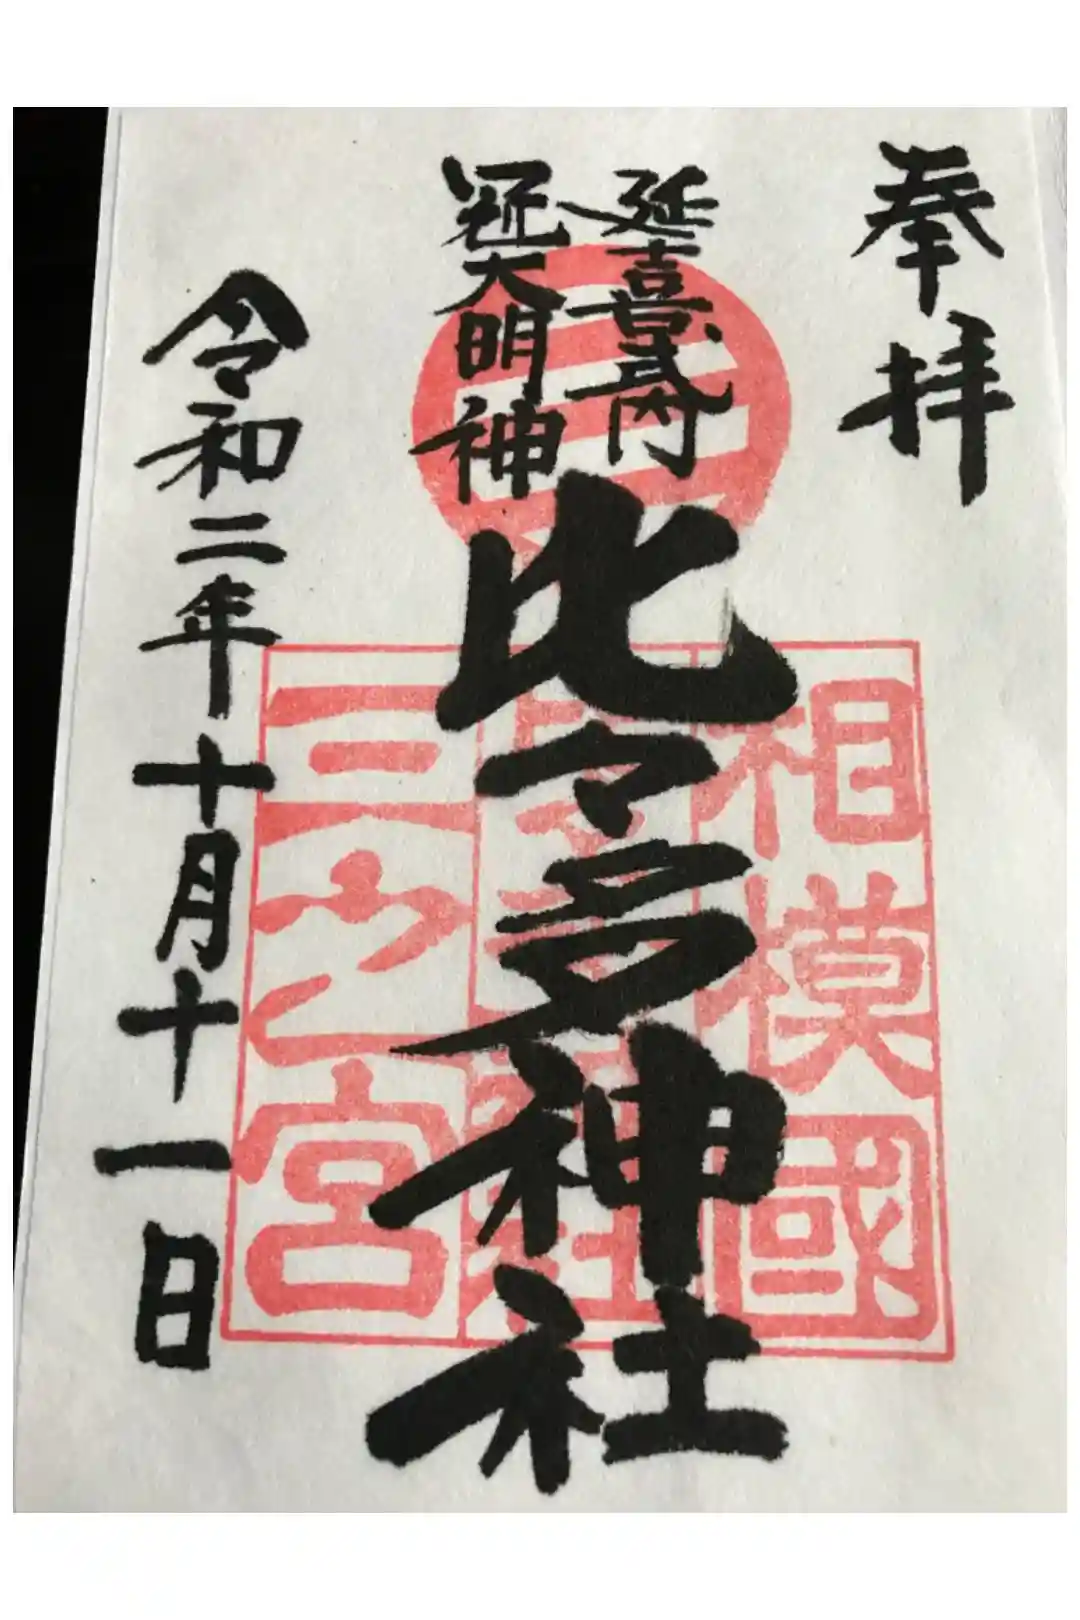 奉拝
延喜式内
冠大明神
比々多神社
令和二年十月十一日
相模國
三之宮